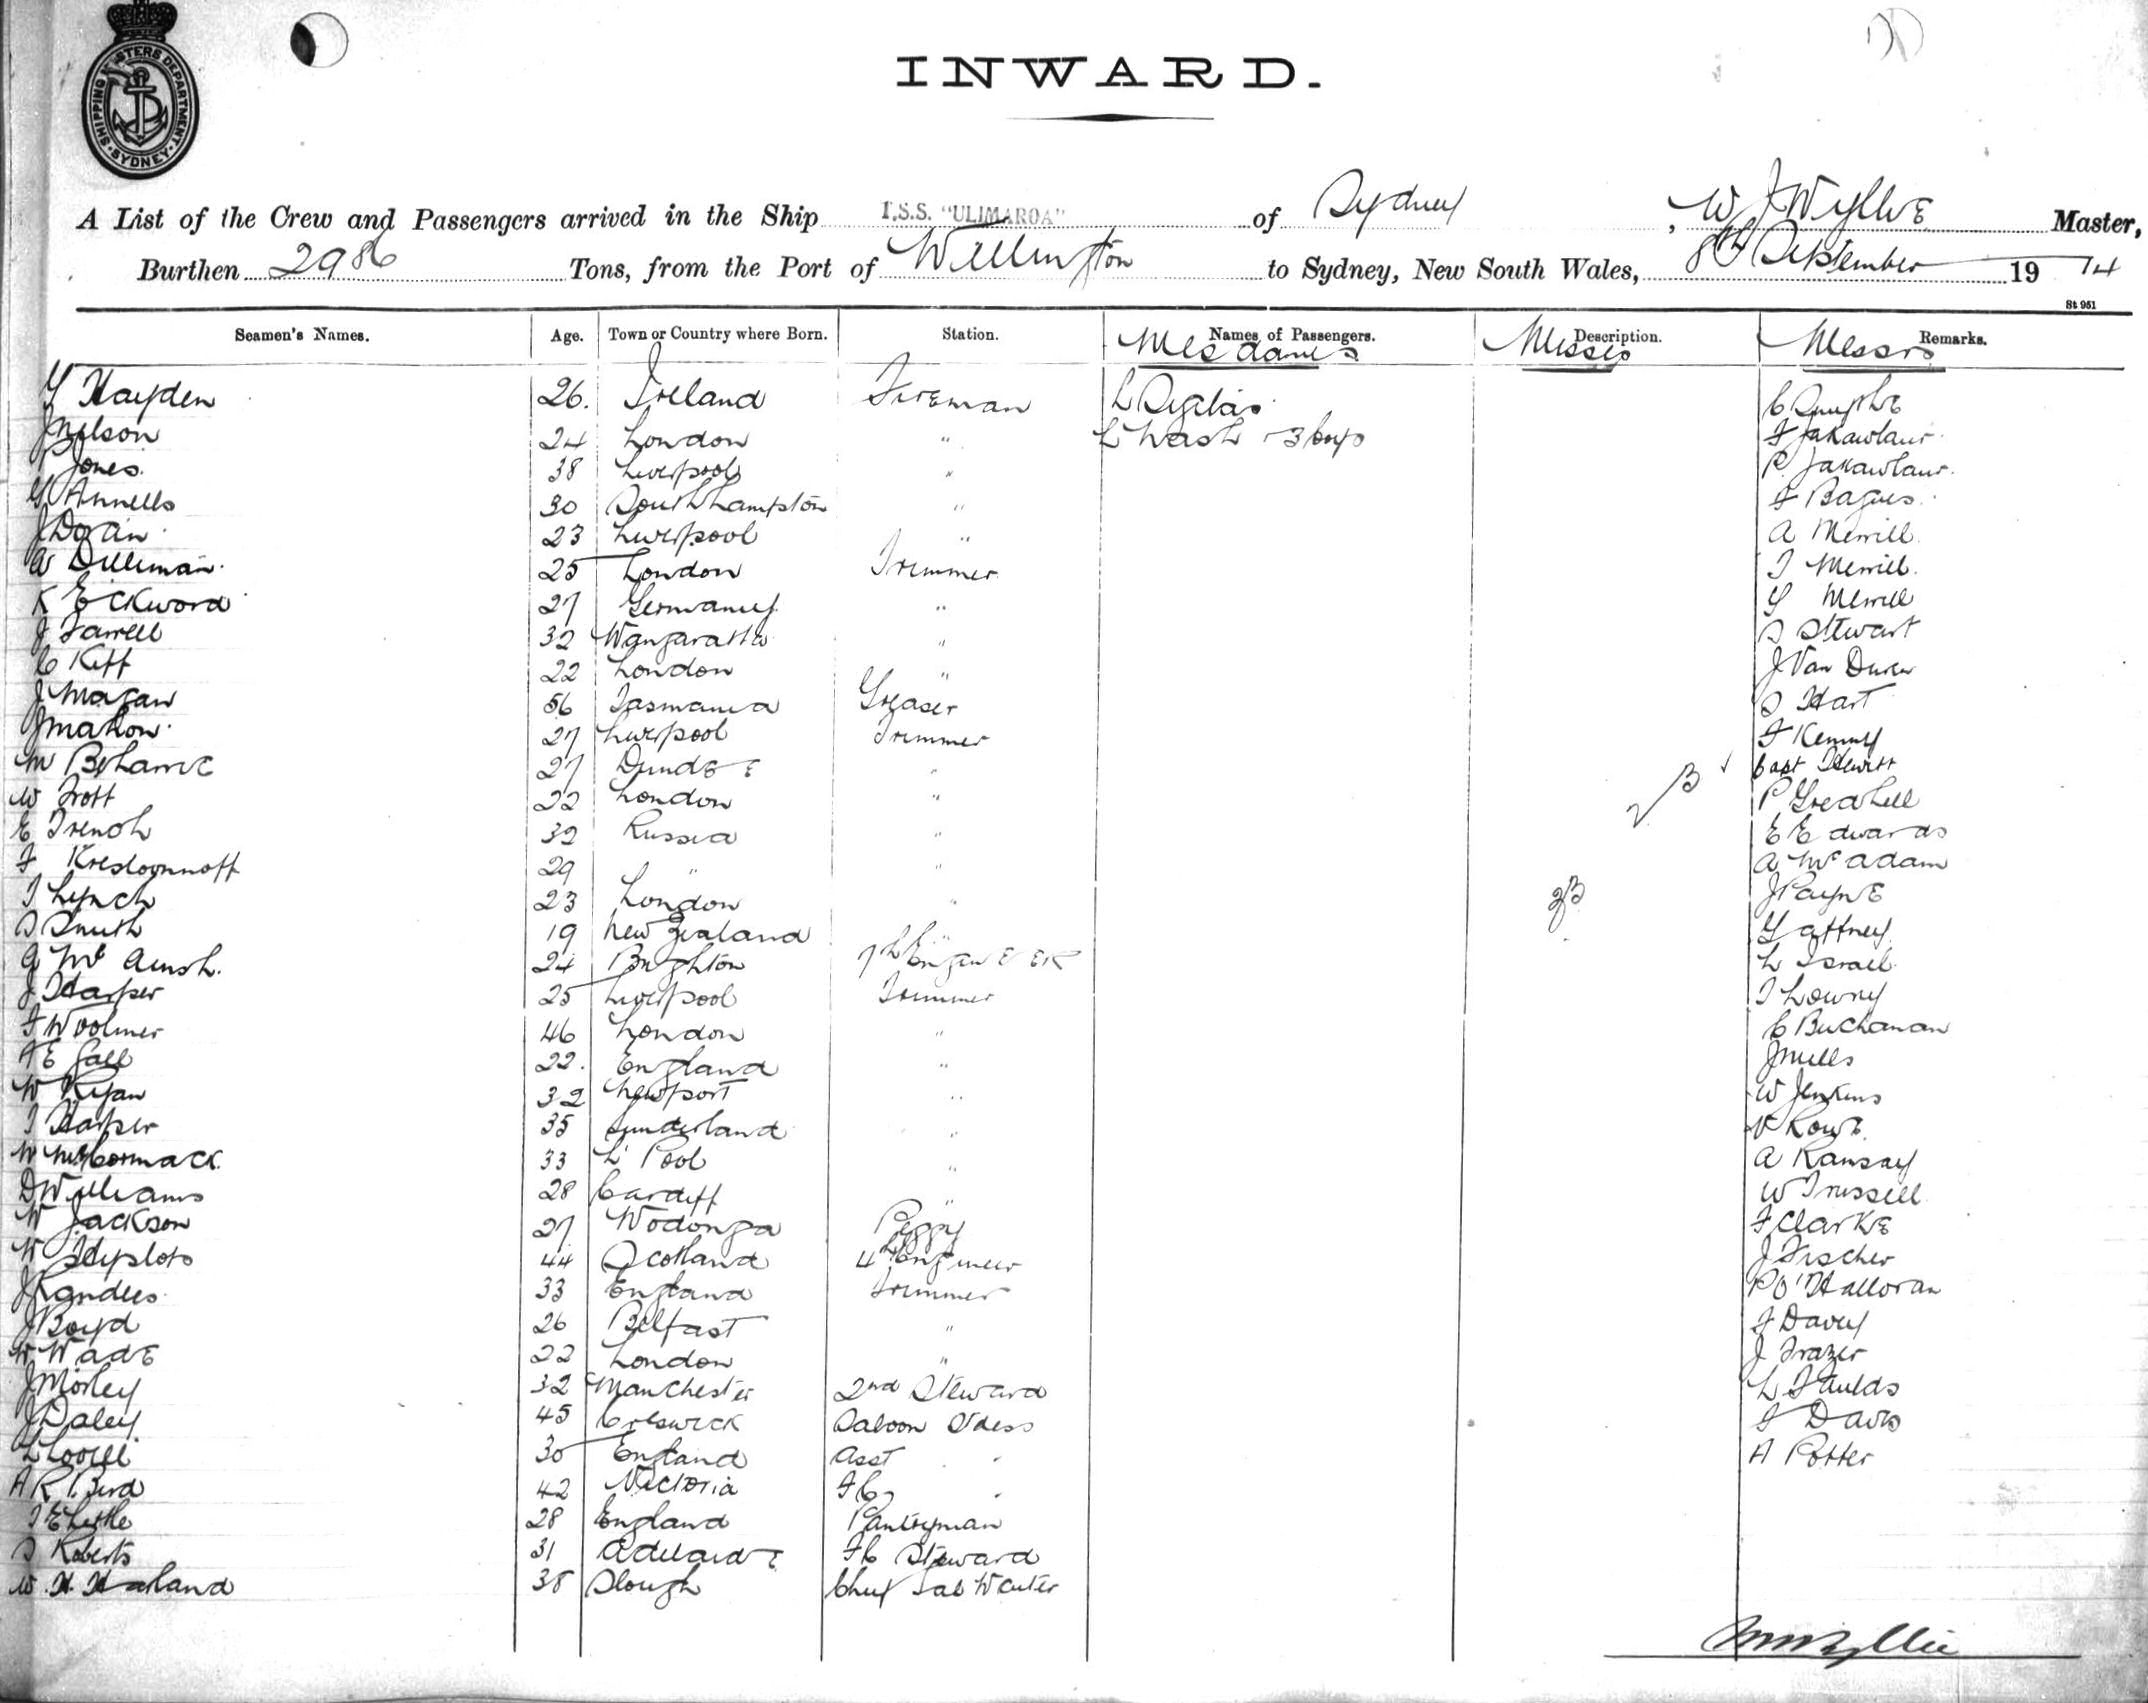 SHIPPING MASTERS DEPARTMENT
SYDNEY
INWARD.
A List of the Crew and Passengers arrived in the Ship T.S.S. "ULIMAROA" of Sydney, W J Wyllie Master,
Burthen 2986 Tons, from the Port of Wellington to Sydney, New South Wales, 8th September 1914
St 951
Seamen's Names. Age. Town or Country where Born. Station. Names of Passengers. Description. Remarks.
Mesdames Misses Messrs
Hayden 26. Ireland Fireman L
J Nelson 24 London " L Nash 3 boys F
P Jones. 38 Liverpool " P.
G Annells 30 Southhampton " F Bagues.
J Doran 23 Liverpool " A Merrill
A Dilliman. 25 London Trimmer J Merrill.
K Eckword 27 Germany " G Merrill
J Farrell 32 Wangaratta " S Stewart
C Kiff 22 London " J Van
J Magan 56 Tasmania Greaser S Hart
J Mahon. 27 Liverpool Trimmer F Kenny
M 27 Dundee " Capt Hewitt
W Trott 22 London " P Greahell
E Trench 32 Russia " E Edwards
F 29 " " A McAdam
T Lynch 23 London " J Payne
S Smith 19 New Zealand " Gaffney
A Mc 24 Brighton 7th Engineer L Israel
J Harper 25 Liverpool Trimmer T Lowry
F Woolmer 46 London " C Buchanan
A E Gall 22. England " J Mills
W Ryan 32 Newport " W Jenkins
T Harper 35 Sunderland " V Rowe.
W McCormack. 33 L'Pool " A Ramsay
D Williams 28 Cardiff " W Trussell
W Jackson 27 Wodonga Peggy F Clarke
W 44 Scotland 4th Engineer J Fischer
J Randles 33 England Trimmer P O'Halloran
J Boyd 26 Belfast " F Davey
W Wade 22 London " J Frazer
J Morley 32 Manchester 2nd Steward L Faulds
J Daley 45 Creswick Saloon S'dess F Davis
L Lovell 30 England Asst " A Potter
A R Bird 42 Victoria F C "
T E 28 England Pantryman
S Roberts 31 Adelaide F C Steward
W. H. Harland 38 Slough Chief Sal Waiter
W J Wyllie